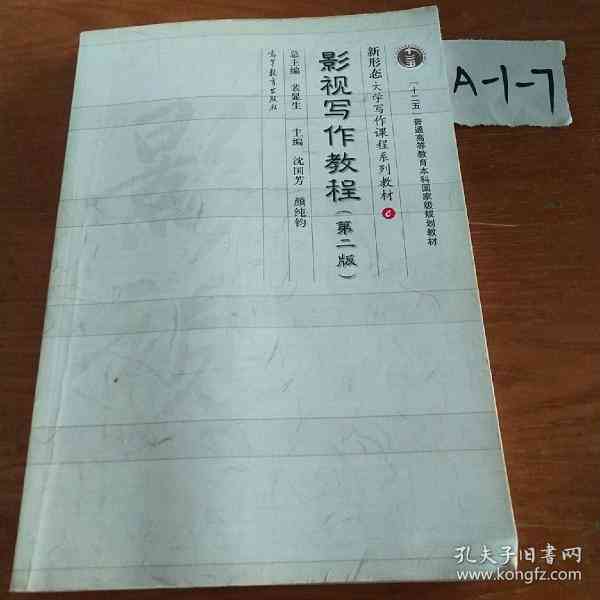 十二五
“十二五”普通高等教育本科国家级规划教材
新形态大学写作课程系列教材 e
影视写作教程(第二版)
总主编 裴显生 主编 沈国芳 颜纯钧
高等教育出版社
A-1-7
孔夫子旧书网
www.kongfz.com